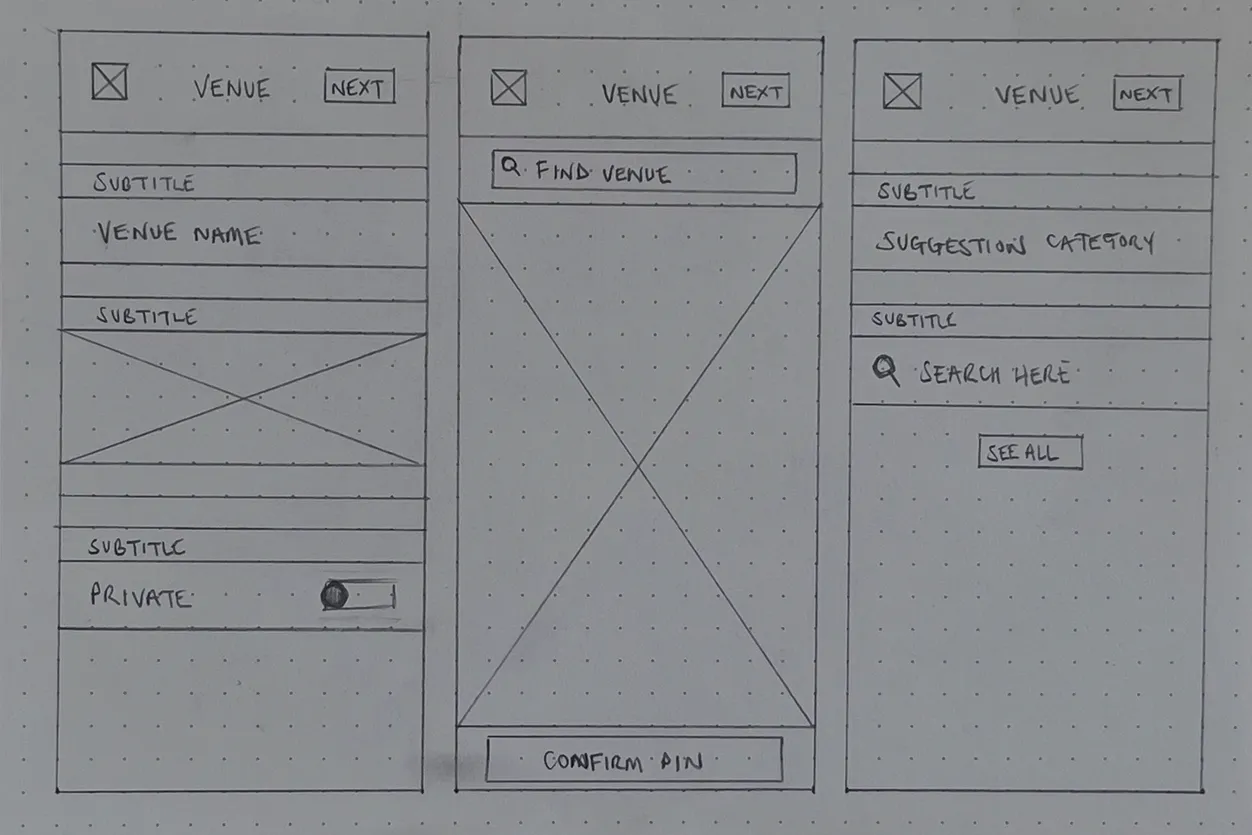 VENUE NEXT
SUBTITLE
VENUE NAME
SUBTITLE
SUBTITLE
PRIVATE
VENUE NEXT
FIND VENUE
CONFIRM PIN
VENUE NEXT
SUBTITLE
SUGGESTION CATEGORY
SUBTITLE
SEARCH HERE
SEE ALL